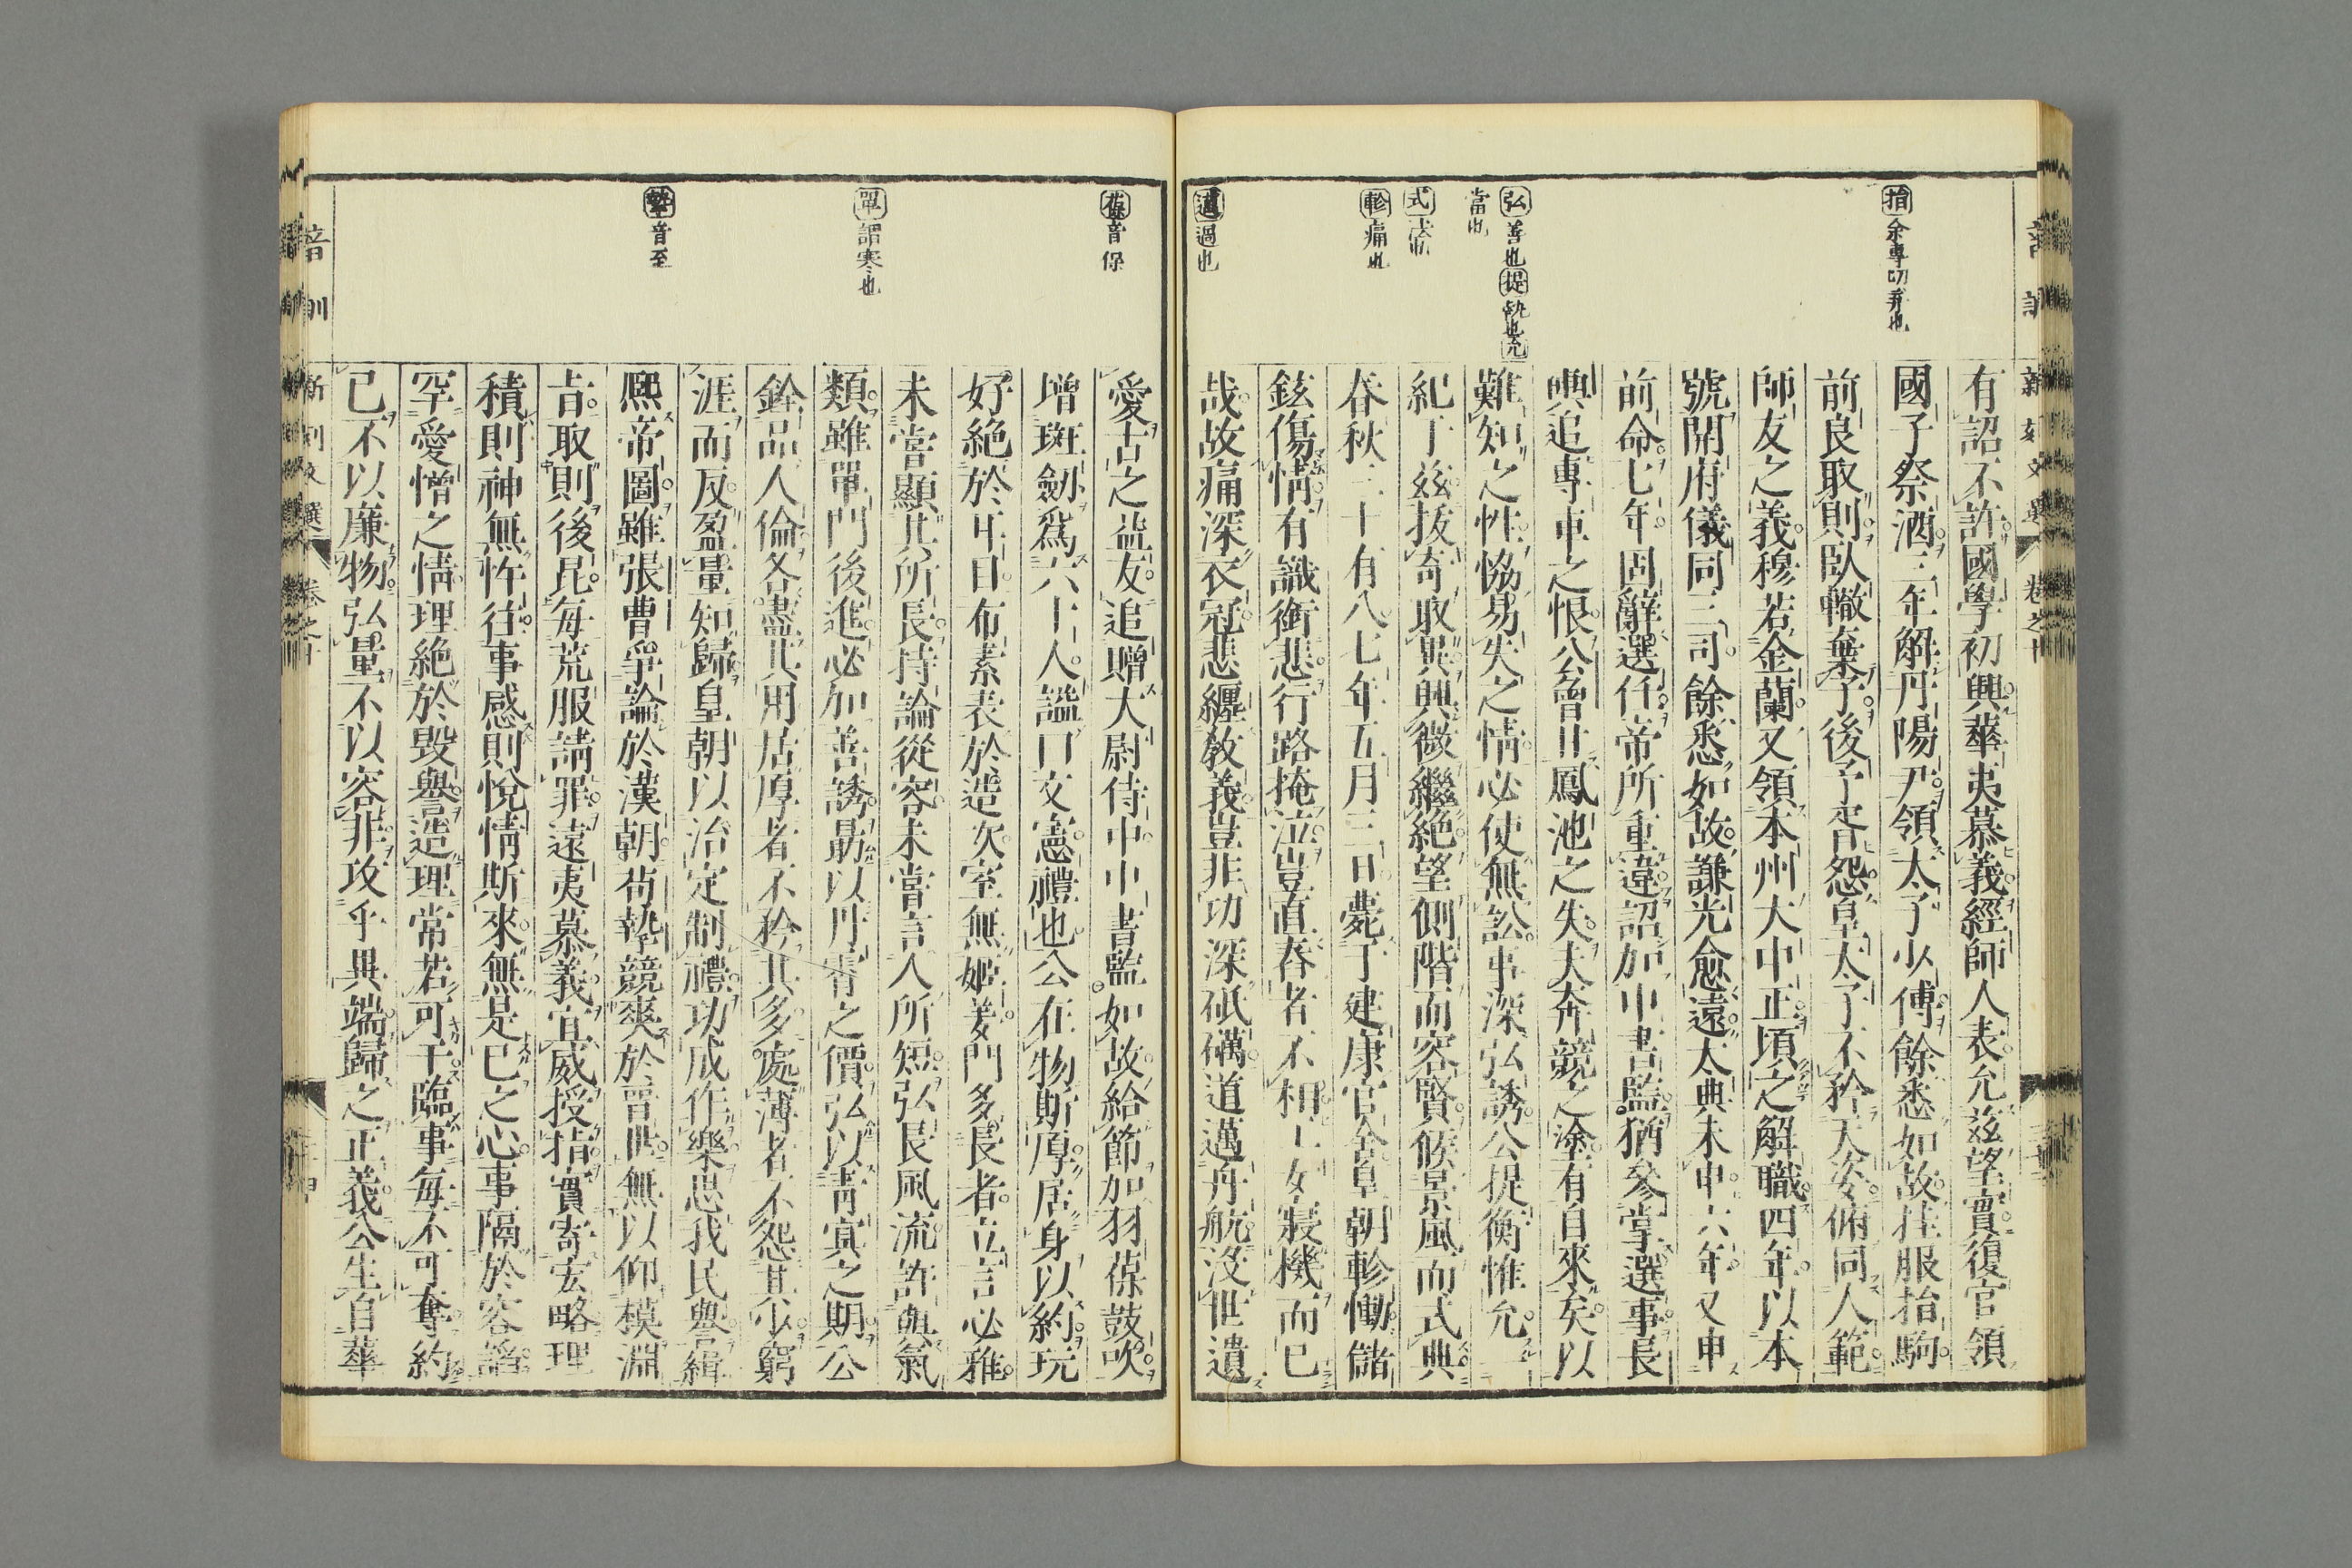 捐 余專切弃也
弘 善也 提 執也 允
當也
式 法也
軫 痛也
邁 過也
有詔不許國學初興華夷慕義經師人表允茲望實復官領
國子祭酒三年解丹陽尹領太子少傅餘悉如故挂服捐駒
前良取則臥轍棄子後予胥怨皇太子不矜天姿俯同人範
師友之義穆若金蘭又領本州大中正頃之解職四年以本
號開府儀同三司餘悉如故謙光愈遠大典未申六年又申
前命七年固辭選任帝所重違詔加中書監猶參掌選事長
輿追專車之恨公曾甘鳳池之失夫奔競之塗有自來矣以
難知之性協易失之情必使無訟事深弘誘公提衡惟允
紀于茲拔奇取異興微繼絕望側階而容賢候景風而式典
春秋三十有八七年五月三日薨于建康官舍皇朝軫慟儲
鉉傷情有識銜悲行路掩泣豈直舂者不相工女寢機而已
哉故痛深衣冠悲纏教義豈非功深砥礪道邁舟航沒世遺
葆 音保
單 謂寒也
摯 音至
愛古之益友追贈大尉侍中中書監如故給節加羽葆鼓吹
增班劒爲六十人諡曰文憲禮也公在物斯厚居身以約玩
好絕於耳目布素表於造次室無姬姜門多長者立言必雅
未嘗顯其所長持論從容未嘗言人所短弘長風流許與氣
類雖單門後進必加善誘勗以丹霄之價弘以青冥之期公
銓品人倫各盡其用居厚者不矜其多處薄者不怨其少窮
涯而反盈量知歸皇朝以治定制禮功成作樂思我民譽緝
熙帝圖雖張曹爭論於漢朝荀摯競爽於晉世無以仰模淵
旨取則後昆每荒服請罪遠夷慕義宣威授指實寄宏略理
積則神無忤往事感則悅情斯來無是已之心事隔於容諂
罕愛憎之情理絕於毀譽造理常若可干臨事每不可奪約
己不以廉物弘量不以容非攻乎異端歸之正義公生自華
音訓
新刻文選 卷之十